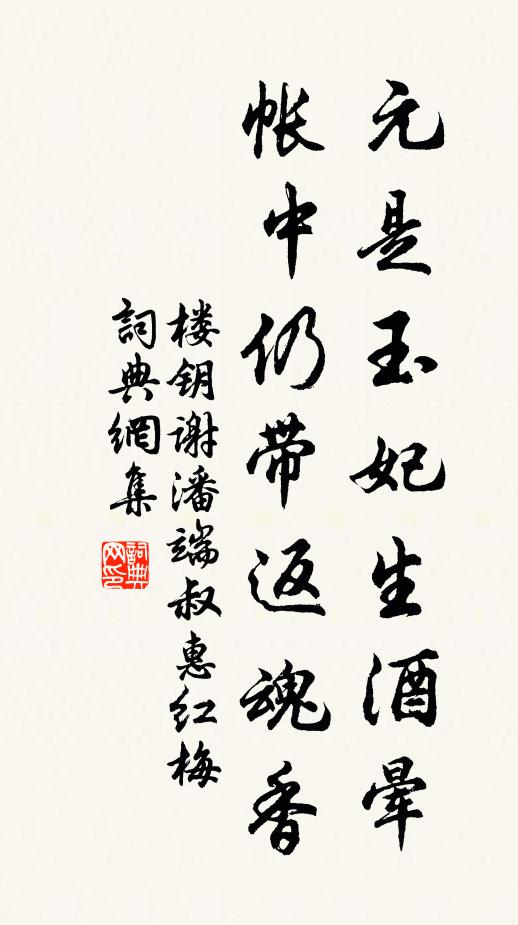 元是玉妃生酒晕
帐中仍带返魂香
楼钥谢潘端叔惠红梅
詞典網集
詞典網印